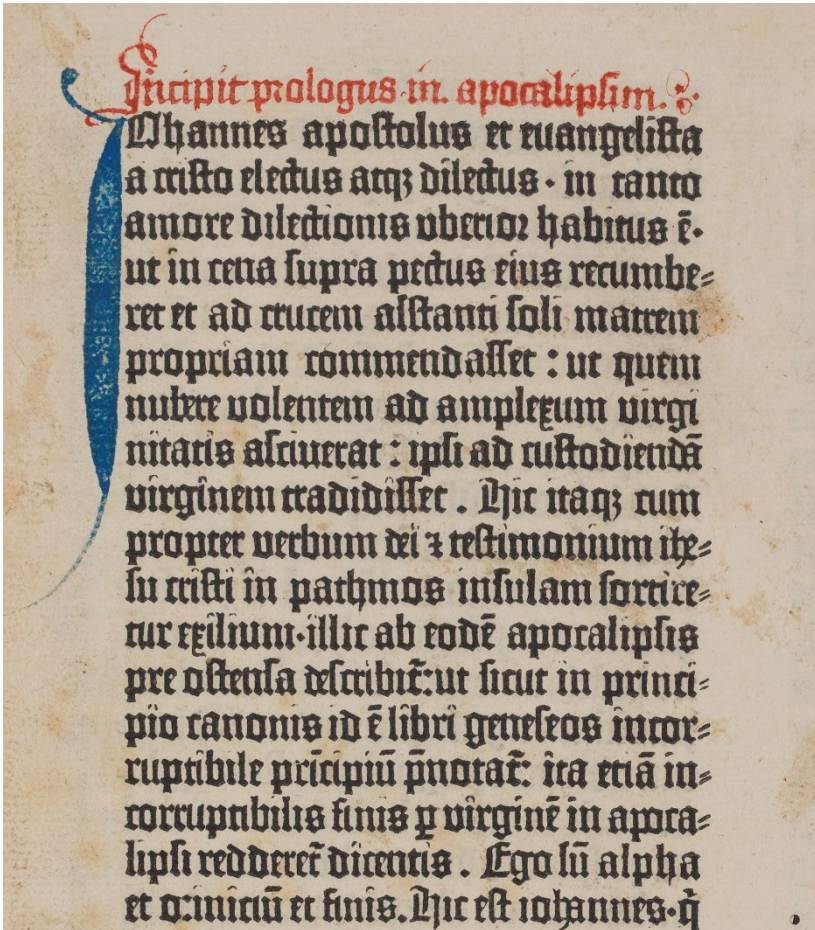 Incipit prologus in. apocalipsim.
IOhannes apostolus et euangelista
a cristo electus atqꝫ dilectus · in tanto
amore dilectionis vberior habitus ē·
ut in cena supra pectus eius recumbe⸗
ret et ad crucem asstanti soli matrem
propriam commendasset : ut quem
nubere volentem ad amplexum virgi
nitatis asciuerat : ipsi ad custodiendā
virginem tradidisset . Hic itaqꝫ cum
propter verbum dei ⁊ testimonium ihe⸗
su cristi in pathmos insulam sortire⸗
tur exilium·illic ab eodē apocalipsis
pre ostensa describit̄:ut sicut in princi⸗
pio canonis id ē libri geneseos incor⸗
ruptibile prīcipiū p̄notat̄: ita etiā in⸗
corruptibilis finis ꝑ virginē in apoca⸗
lipsi redderet̄ dicentis . Ego sū alpha
et o:iniciū et finis. Hic est iohannes·q̄